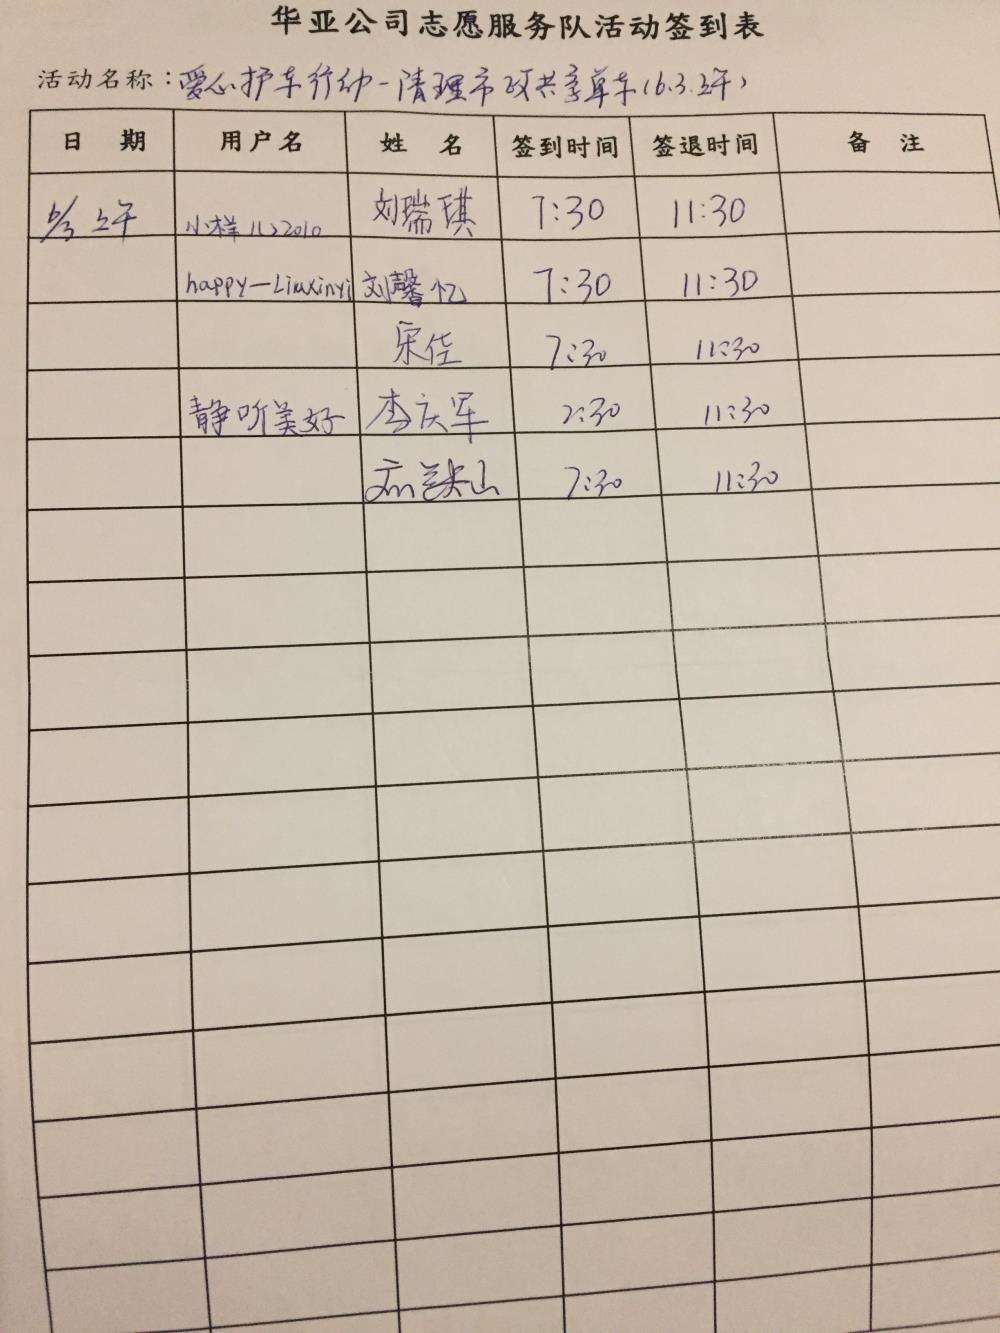 华亚公司志愿服务队活动签到表
活动名称：爱心护车行动-清理市政共享单车(6.3.上午)
日 期 用户名 姓 名 签到时间 签退时间 备 注
6/3 上午 小样1122010 刘瑞琪 7:30 11:30
happy—Liuxinyi 刘馨忆 7:30 11:30
宋佳 7:30 11:30
静听美好 李庆军 7:30 11:30
7:30 11:30